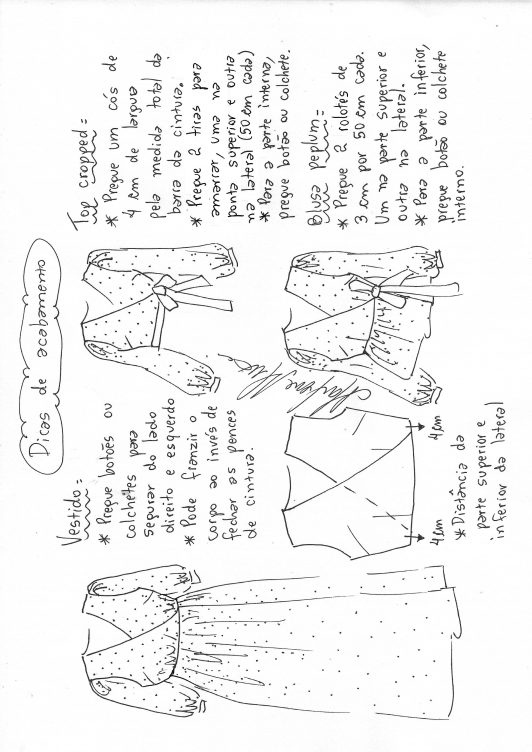 Dicas de acabamento
Vestido:
* Pregue botões ou
colchetes para
segurar do lado
direito e esquerdo
* Pode franzir o
corpo ao invés de
fechar as pences
de cintura.
4 cm
4 cm
* Distância da
parte superior e
inferior da lateral
Top cropped:
* Pregue um cós de
4 cm de largura
pela medida total da
barra da cintura.
* Pregue 2 tiras para
amarrar, uma na
ponta superior e outra
na lateral (50 cm cada)
* Para a parte interna,
pregue botão ou colchete.
Blusa peplum:
* Pregue 2 rolotês de
3 cm por 50 cm cada.
Um na parte superior e
outra na lateral.
* Para a parte inferior,
pregue botão ou colchete
interno.